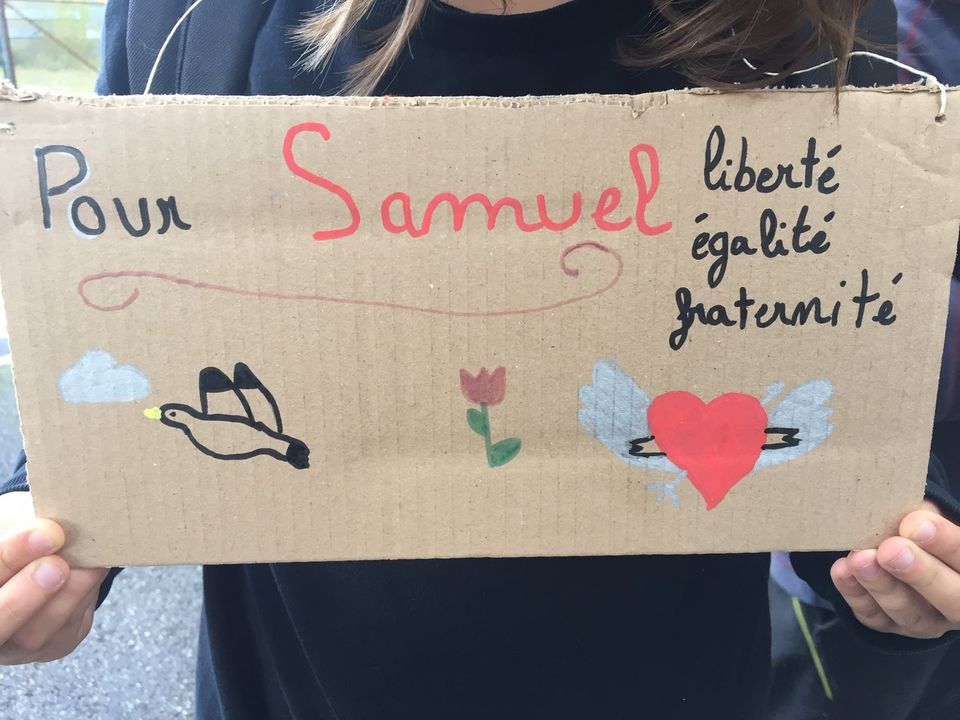 Pour Samuel
liberté
égalité
fraternité